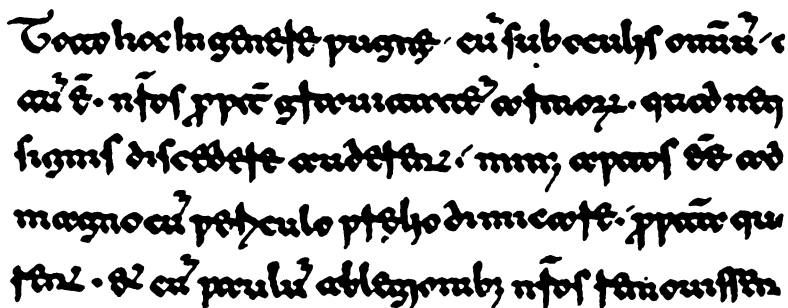 Toto hoc in genere pugnę · cū sub oculis omniū · c
ctū ē · nr̄os ꝓpt̄ grauitatē armoꝝ · quod neq
signis discedere auderent · minꝰ aptos eē ad
magno cū periculo prelio dimicare · ꝓpt̄ea qu
rent · Et cū paulū ab legionibꝫ nr̄os remouissen